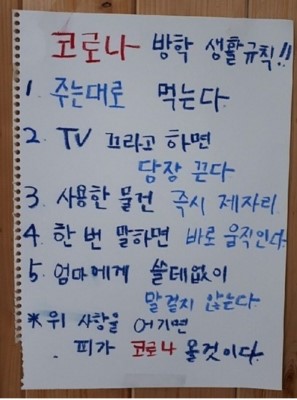 코로나 방학 생활규칙!!
1. 주는대로 먹는다
2. TV 끄라고 하면
당장 끈다
3. 사용한 물건 즉시 제자리
4. 한 번 말하면 바로 움직인다.
5. 엄마에게 쓸데없이
말걸지 않는다
※위 사항을 어기면
피가 코로나 올것이다.